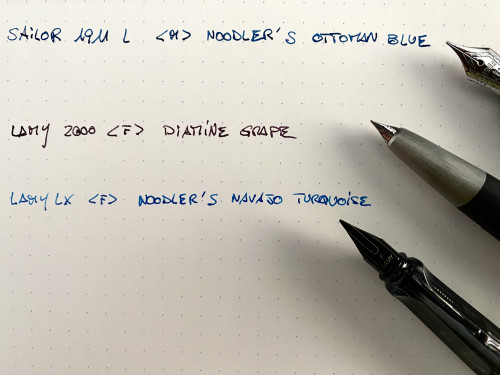 SAILOR 1911 L <M> NOODLER'S OTTOMAN BLUE
LAMY 2000 <F> DIAMINE GRAPE
LAMY LX <F> NOODLER'S NAVAJO TURQUOISE